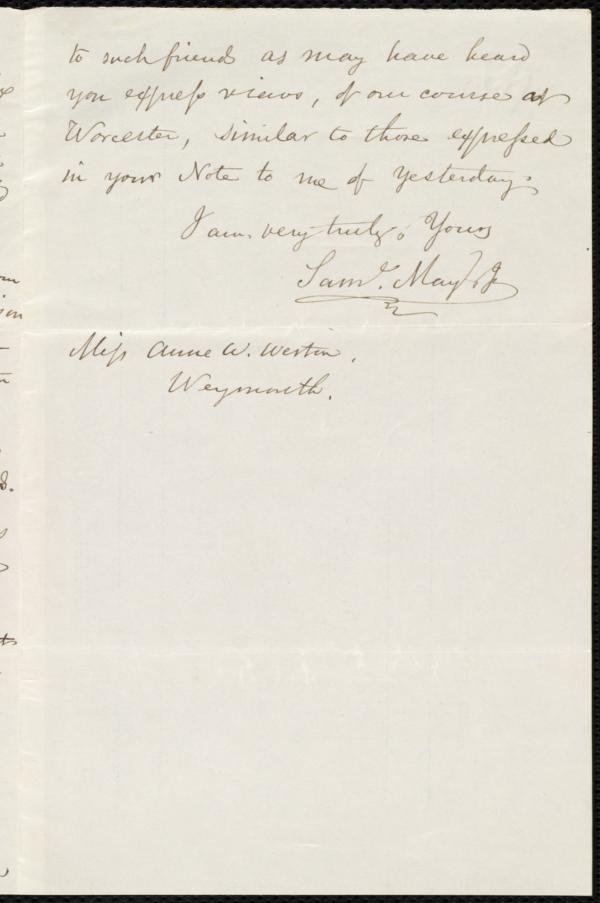 to such friends as may have heard
you express views, of our course at
Worcester, similar to those expressed
in your Note to me of yesterday.
I am, very truly, Yours
Saml. May, Jr
Miss Anne W. Weston.
Weymouth.